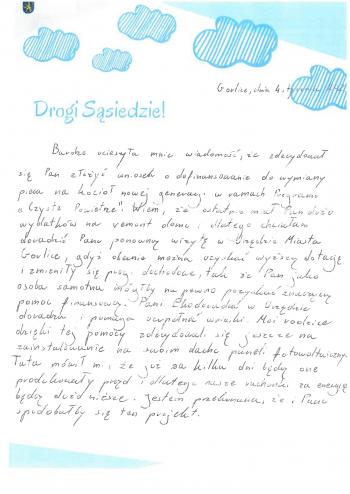 Gorlice, dnia 4. stycznia
Drogi Sąsiedzie!
Bardzo ucieszyła mnie wiadomość, że zdecydował
się Pan złożyć wniosek o dofinansowanie do wymiany
pieca na kocioł nowej generacji w ramach Programu
„Czyste Powietrze". Wiem, że ostatnio miał Pan dużo
wydatków na remont domu i dlatego chciałam
doradzić Panu ponowną wizytę w Urzędzie Miasta
Gorlice, gdyż obecnie można uzyskać wyższą dotację
i zmieniły się progi dochodowe, tak że Pan jako
osoba samotna mógłby na pewno pozyskać znaczną
pomoc finansową. Pani Ekodoradca w Urzędzie
doradza i pomaga wypełnić wnioski. Moi rodzice
dzięki tej pomocy zdecydowali się jeszcze na
zainstalowanie na swoim dachu paneli fotowoltaicznych.
Tata mówił mi, że już za kilka dni będą one
produkowały prąd i dlatego nasze rachunki za energię
będą dużo niższe. Jestem przekonana, że i Panu
spodobałby się ten projekt.